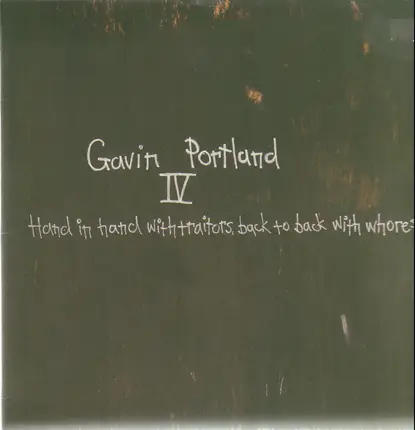 Gavin Portland
IV
Hand in hand with traitors, back to back with whores